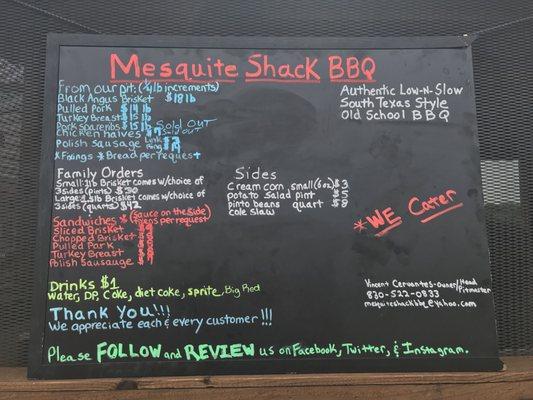 Mesquite Shack BBQ
From our pit: (1/4lb increments)
Black Angus Brisket $18 lb
Pulled Pork $14 lb
Turkey Breast $15 lb
Pork spareribs $15 lb Sold OUT
Chicken halves $7 Sold OUT
Polish Sausage Link
Ring
*Fixings *Bread per request
Authentic Low-N-Slow
South Texas Style
Old School BBQ
Family Orders
Small: 1lb Brisket comes w/choice of
3 sides (pints) $30
Large: 1.5lb Brisket comes w/choice of
3 sides (quarts) $42
Sides
cream corn small (6oz) $3
potato salad pint $5
pinto beans quart $8
cole slaw
*WE Cater
Sandwiches * (Sauce on the side)
per request)
Sliced Brisket
Chopped Brisket
Pulled Pork
Turkey Breast
Polish Sausauge
Drinks $1
Water, DP, Coke, diet coke, sprite, Big Red
Vincent Cervantes-owner/Head
Pitmaster
830-522-0833
mesquiteshackbbq@yahoo.com
Thank You!!!
We appreciate each & every customer!!!
Please FOLLOW and REVIEW us on Facebook, Twitter, & Instagram.